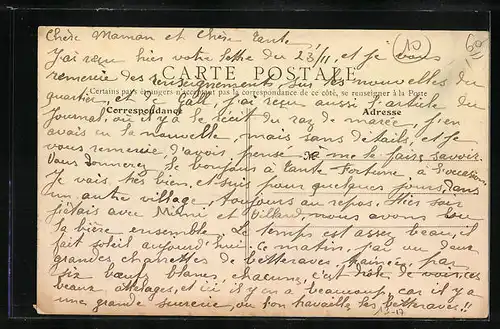 Chère Maman et Chère Tante
J'ai reçu hier votre lettre du 23/11, et je vous
remercie des renseignements, sur les nouvelles du
CARTE POSTALE
Certains pays étrangers n'acceptent pas la correspondance de ce côté, se renseigner à la Poste
quartier, et de j'ai reçu aussi l'article du
Correspondance
Adresse
journal, où il y a le récit du raz de marée, j'en
avais eu la nouvelle, mais sans détails, et je
vous remercie d'avoir pensé à me le faire savoir.
Vous donnerez le bonjour à Tante Fortune à l'occasion
Je vais très bien, et suis pour quelques jours, dans
un autre village, toujours au repos. Hier soir
j'étais avec et Billard, nous avons bu
la bière ensemble. Le temps est assez beau, il
fait soleil aujourd'hui. Ce matin, j'ai vu deux
grandes charrettes de betteraves, trainées, par
six bœufs blancs, chacune, c'est de voir ces
beaux attelages, et ici il y en a beaucoup, car il y a
une grande sucrerie, où l'on travaille les betteraves!!
10
60
13-17